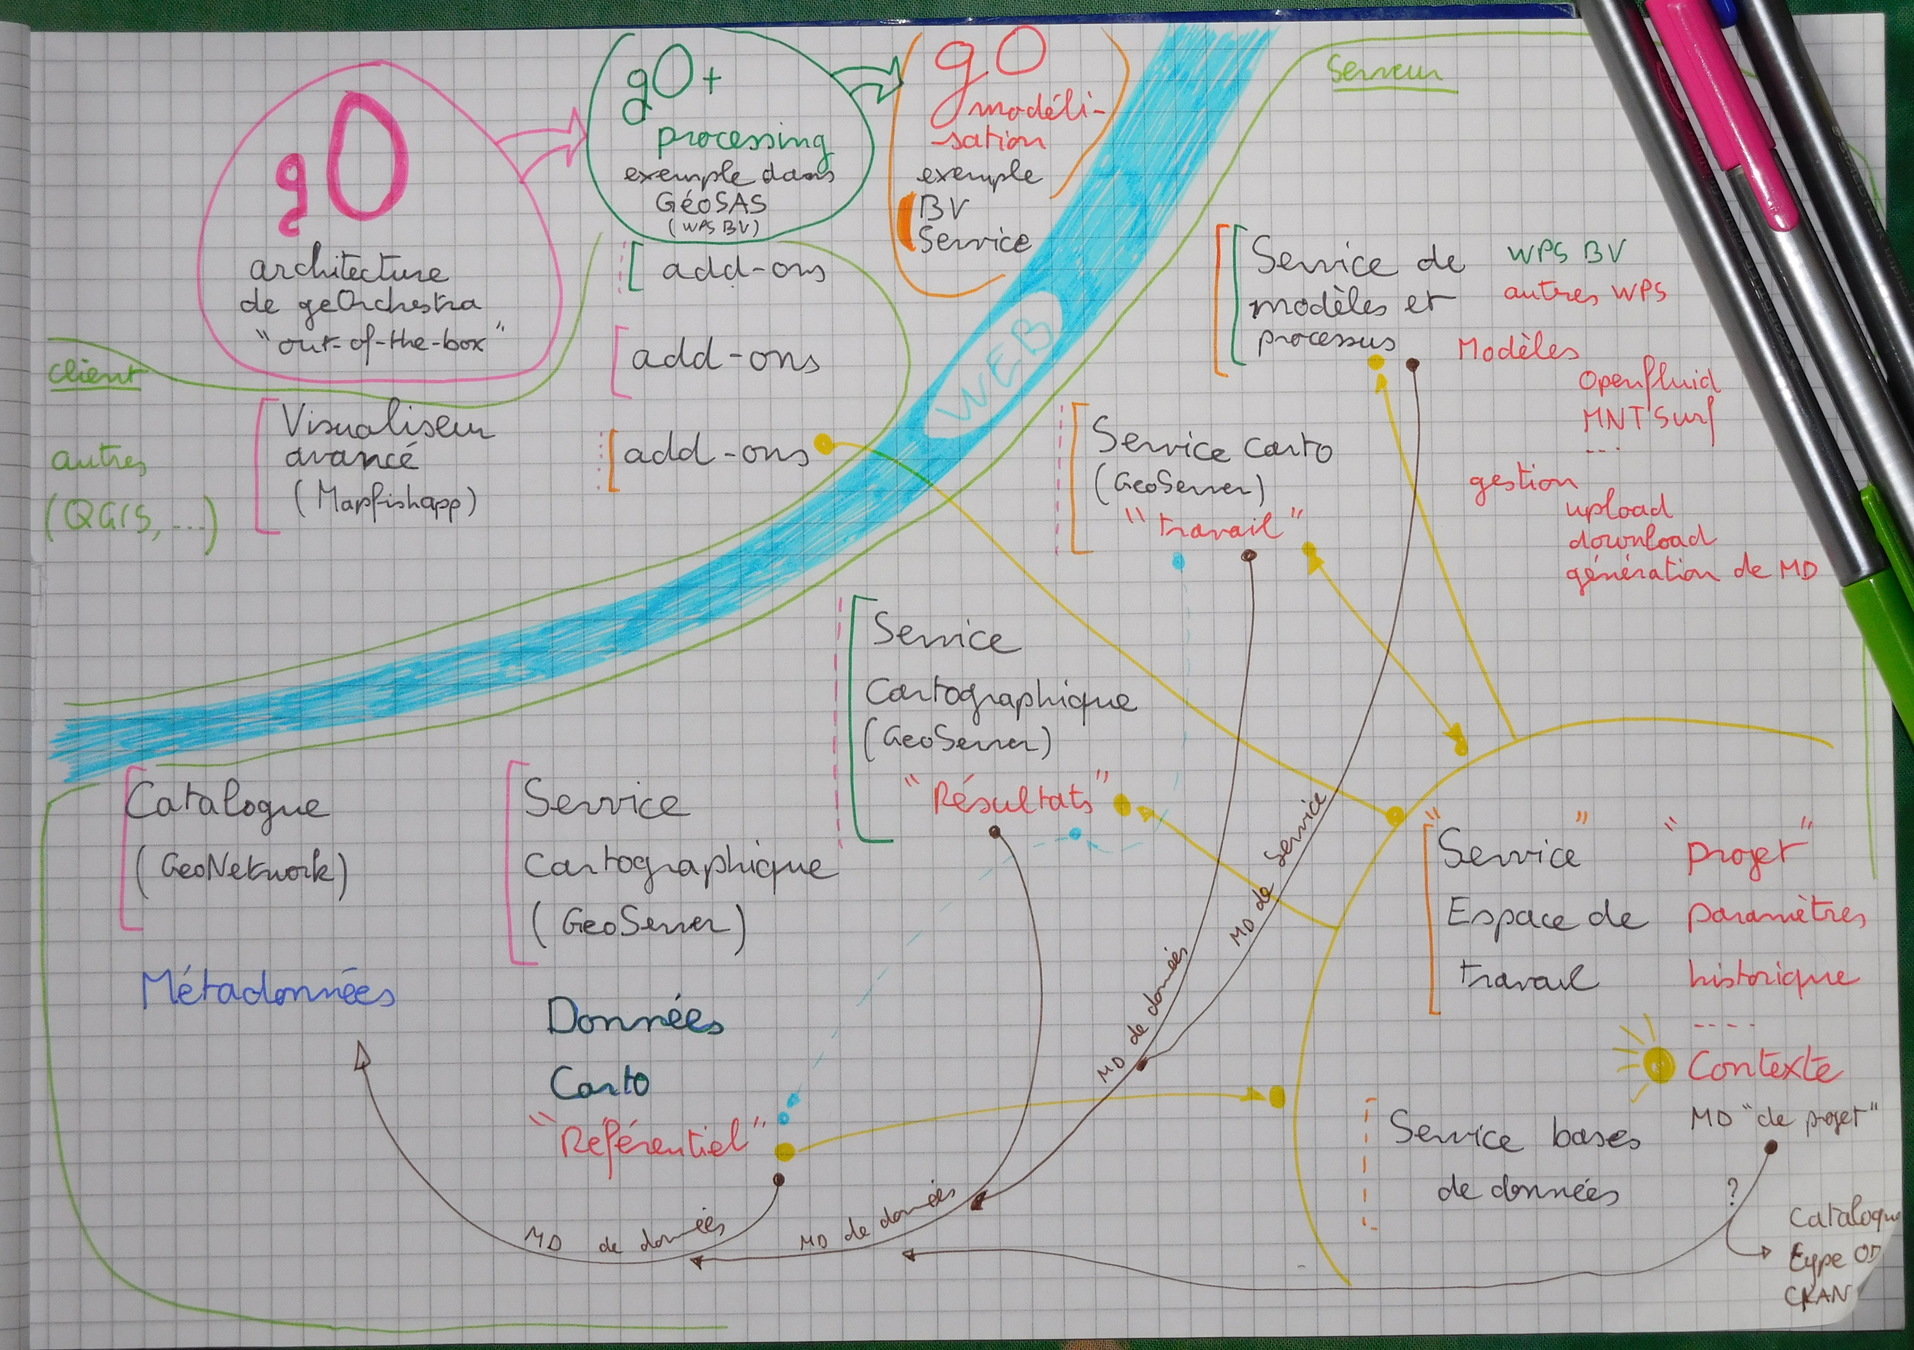 gO
architecture
de geOrchestra
"out-of-the-box"
gO+
processing
exemple dans
GéoSAS
(WPS BV)
gO
modéli-
-sation
exemple
BV
Service
Serveur
client
autres
(QGIS, ...)
Visualiseur
avancé
(Mapfishapp)
add-ons
add-ons
add-ons
WEB
Service de
modèles et
processus
WPS BV
autres WPS
Modèles
Openfluid
MNTSurf
...
gestion
upload
download
génération de MD
Service Carto
(GeoServer)
"travail"
Service
Cartographique
(GeoServer)
"Résultats"
Catalogue
(GeoNetwork)
Métadonnées
Service
Cartographique
(GeoServer)
Données
Carto
"Référentiel"
MD de données
MD de données
MD de données
MD de Service
"Service"
Espace de
travail
"projet"
paramètres
historique
----
Contexte
MD "de projet"
Service bases
de données
?
Catalogue
type OD
CKAN